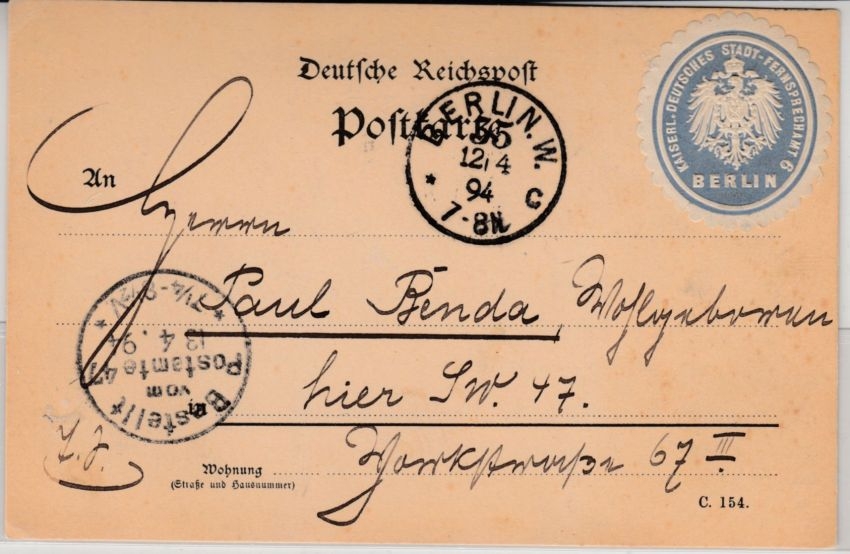 Deutsche Reichspost
Postkarte
KAISERL. DEUTSCHES STADT-FERNSPRECHAMT 6
BERLIN
BERLIN. W.
35
12/4
94
7-8N.
C
An
Herrn
Paul Benda, Wohlgeboren
in
hier SW. 47.
Yorkstraße 67 III
Bestellt
vom
Postamte 47
13 4. 94
7¼-8½V
Wohnung
(Straße und Hausnummer)
C. 154.